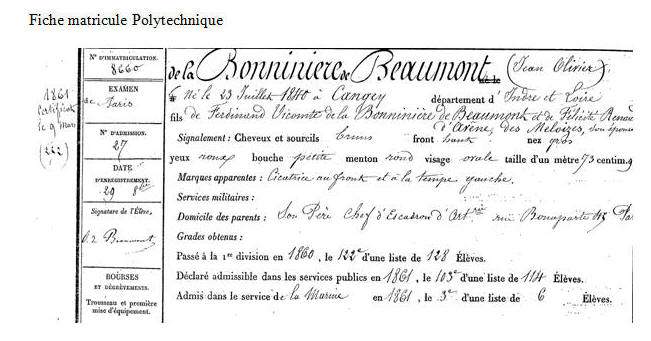 Fiche matricule Polytechnique
N° D'IMMATRICULATION.
8660
EXAMEN
de Paris
N° D'ADMISSION.
27
DATE
D'ENREGISTREMENT.
29 8bre
Signature de l'Élève,
Beaumont
BOURSES
ET DÉGRÈVEMENTS.
Trousseau et première
mise d'équipement.
1861
Certificat
le 9 Mars
(222)
de la Bonninière de Beaumont (Jean Olivier)
Né le 23 Juillet 1840 à Cangey département d'Indre et Loire
fils de Ferdinand Vicomte de la Bonninière de Beaumont et de Félicité Renau
d'Avène, des Meloizes, son épouse
Signalement : Cheveux et sourcils bruns front haut nez gros
yeux roux bouche petite menton rond visage ovale taille d'un mètre 73 centim.
Marques apparentes : Cicatrice au front et à la tempe gauche.
Services militaires :
Domicile des parents : Son Père Chef d'Escadron d'Artrie rue Bonaparte Pa
Grades obtenus :
Passé à la 1re division en 1860, le 122e d'une liste de 128 Élèves.
Déclaré admissible dans les services publics en 1861, le 103e d'une liste de 114 Élèves.
Admis dans le service de la Marine en 1861, le 3e d'une liste de 6 Élèves.